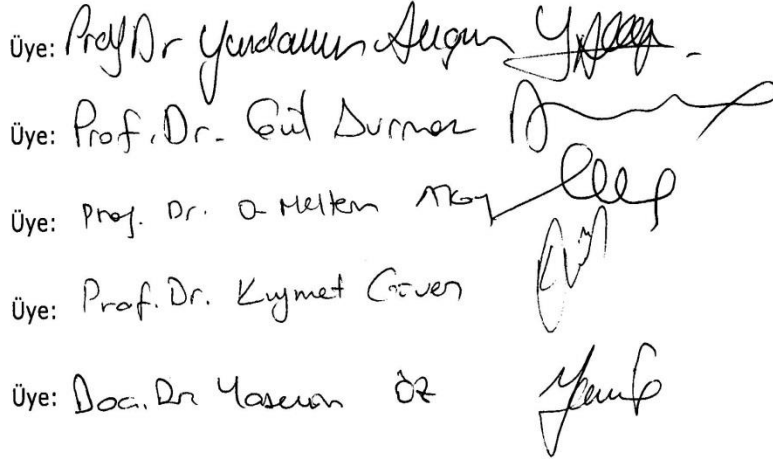 Üye: Prof Dr Yurdanur Akgun
Üye: Prof. Dr. Gül Durmaz
Üye: Prof. Dr. O Meltem
Üye: Prof. Dr. Kıymet Güven
Üye: Doç. Dr. Yasemin ÖZ